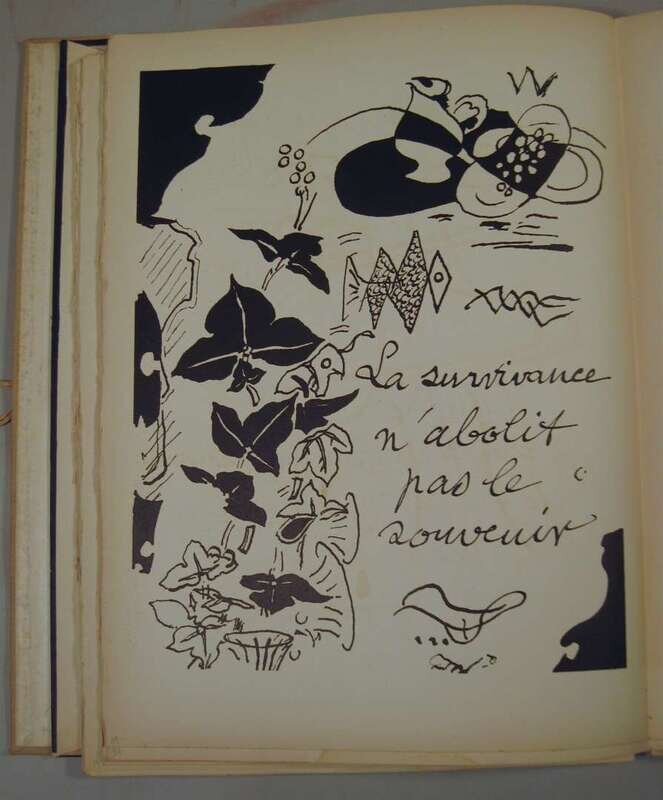 La survivance
n'abolit
pas le
souvenir